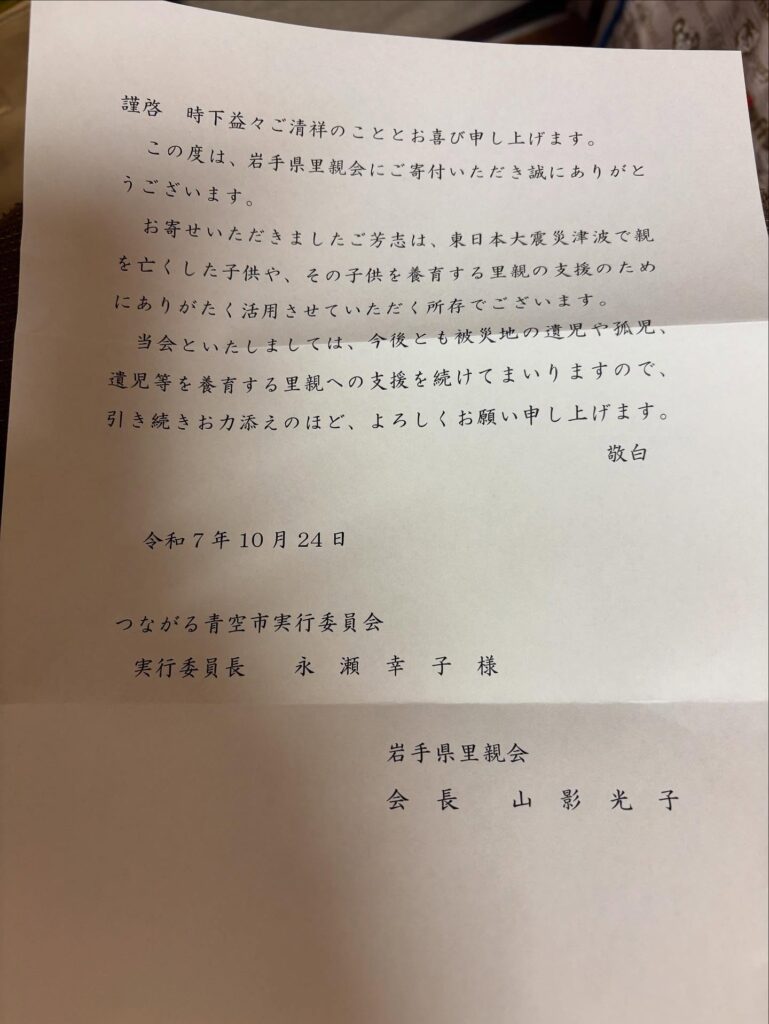 謹啓　時下益々ご清祥のこととお喜び申し上げます。
この度は、岩手県里親会にご寄付いただき誠にありがと
うございます。
お寄せいただきましたご芳志は、東日本大震災津波で親
を亡くした子供や、その子供を養育する里親の支援のため
にありがたく活用させていただく所存でございます。
当会といたしましては、今後とも被災地の遺児や孤児、
遺児等を養育する里親への支援を続けてまいりますので、
引き続きお力添えのほど、よろしくお願い申し上げます。
敬白
令和７年 10 月 24 日
つながる青空市実行委員会
実行委員長　永　瀬　幸　子　様
岩手県里親会
会　長　山　影　光　子